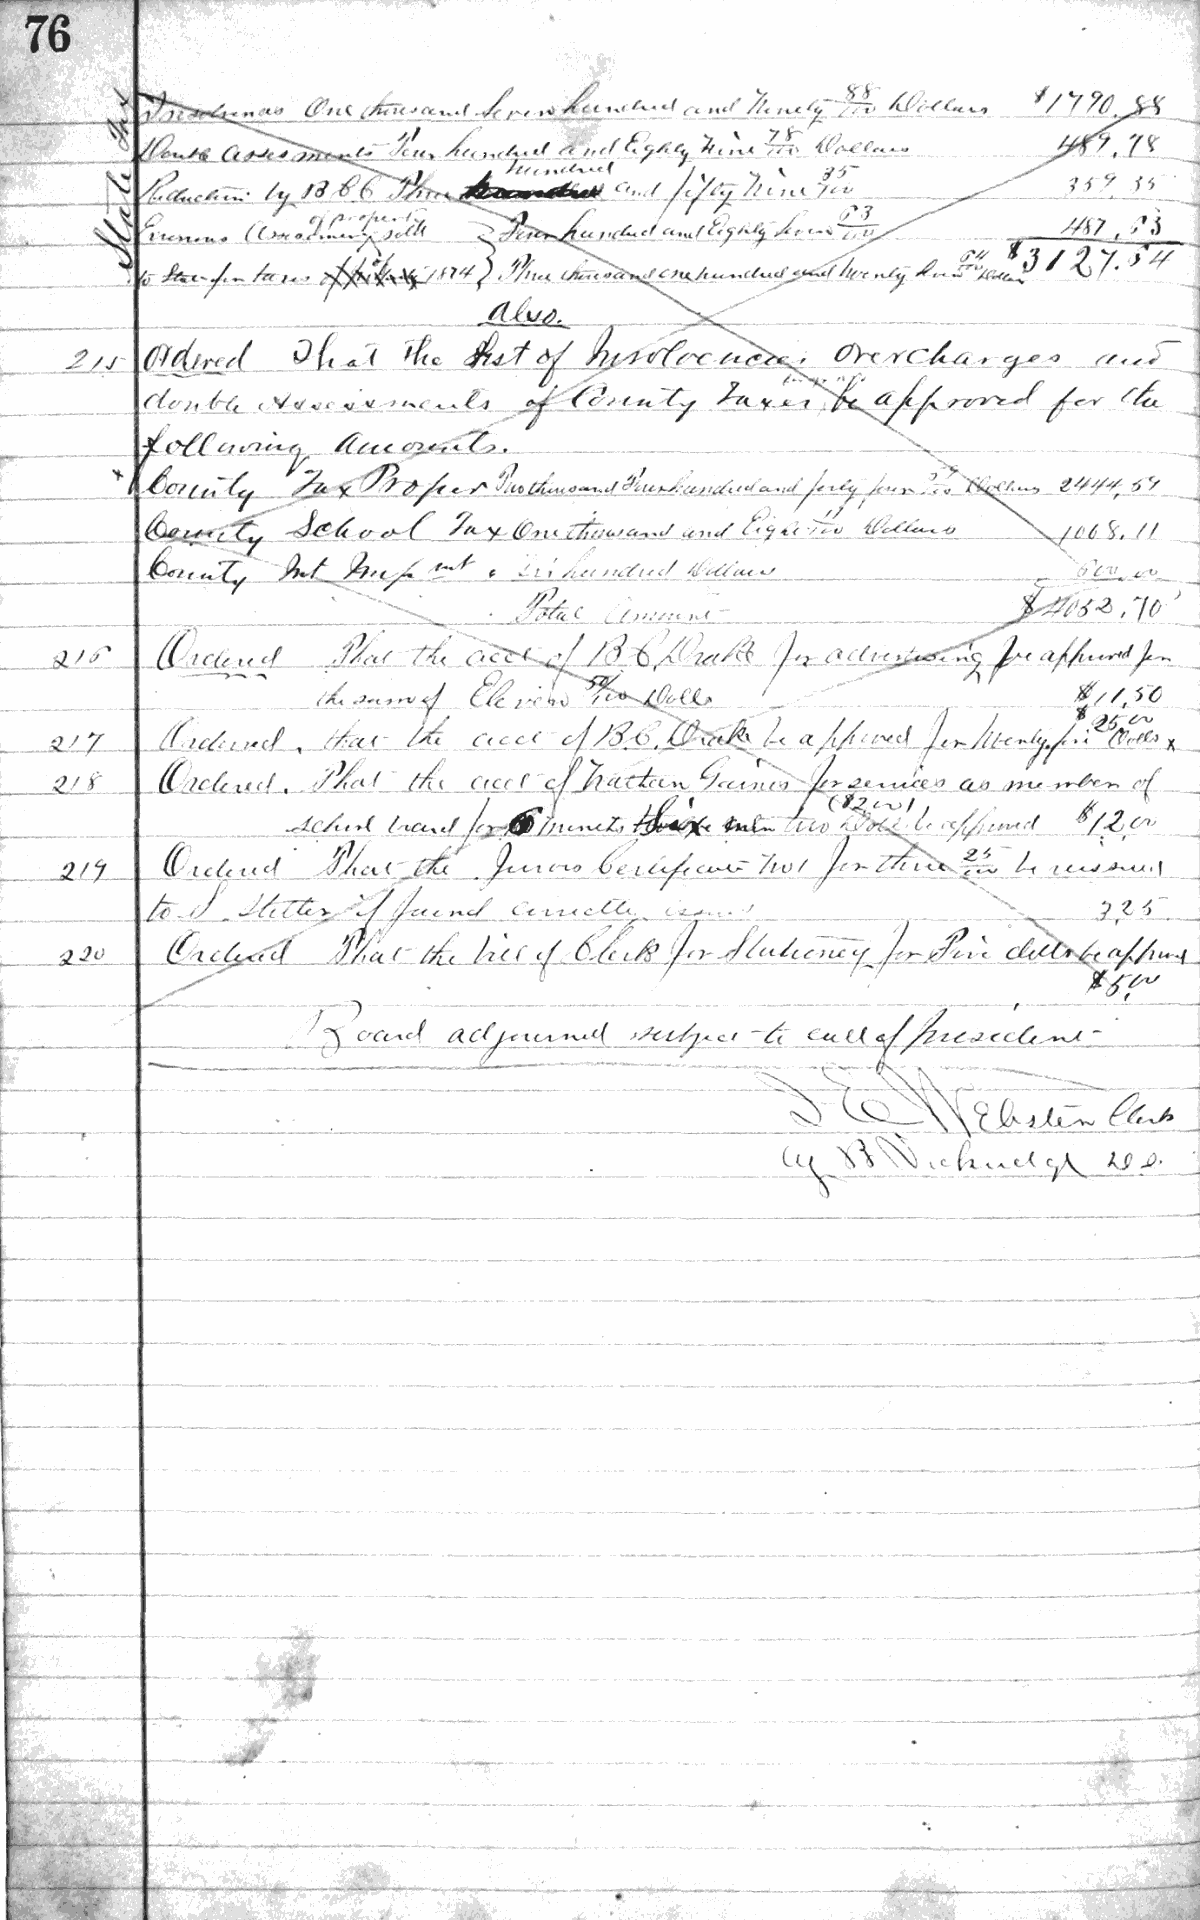 76
State Tax
Insolvencies One thousand Seven hundred and Ninety 88/100 Dollars $1790.88
Double Assessments Four hundred and Eighty Nine 78/100 Dollars 489.78
hundred
Reduction by B C C Three and fifty Nine 35/100 359.35
of property
Erroneous Assessment sold } Four hundred and Eighty Seven 53/100 487.53
to State for taxes 1874 } Three thousand one hundred and twenty Seven 54/100 Dollars $3127.54
also.
215 Ordered That the list of Insolvencies Overcharges and
double Assessments of County Taxes be approved for the
following amounts.
x County Tax Proper Two thousand Four hundred and forty four 59/100 Dollars 2444.59
County School Tax One thousand and Eight 11/100 Dollars 1068.11
County Int Imp mt Six hundred Dollars 600.00
Total Amount $4052.70
216 Ordered That the acct of B C Drake for advertising be approved for
the sum of Eleven 50/100 Dolls $11.50
$25.00
217 Ordered, that the acct of B.C. Drake be approved for twenty five Dolls x
218 Ordered. That the acct of Nathan Gaines for services as member of
($12.00)
school board for 6 two Dolls be approved $12.00
219 Ordered That the Jurors Certificate No 1 for three 25/100 be reissued
to S. Stetter if found correctly issued 3.25
220 Ordered That the bill of Clerk for Stationery for Five dolls be approved
$5.00
Board adjourned subject to call of president
J E Webster Clerk
By B D.C.